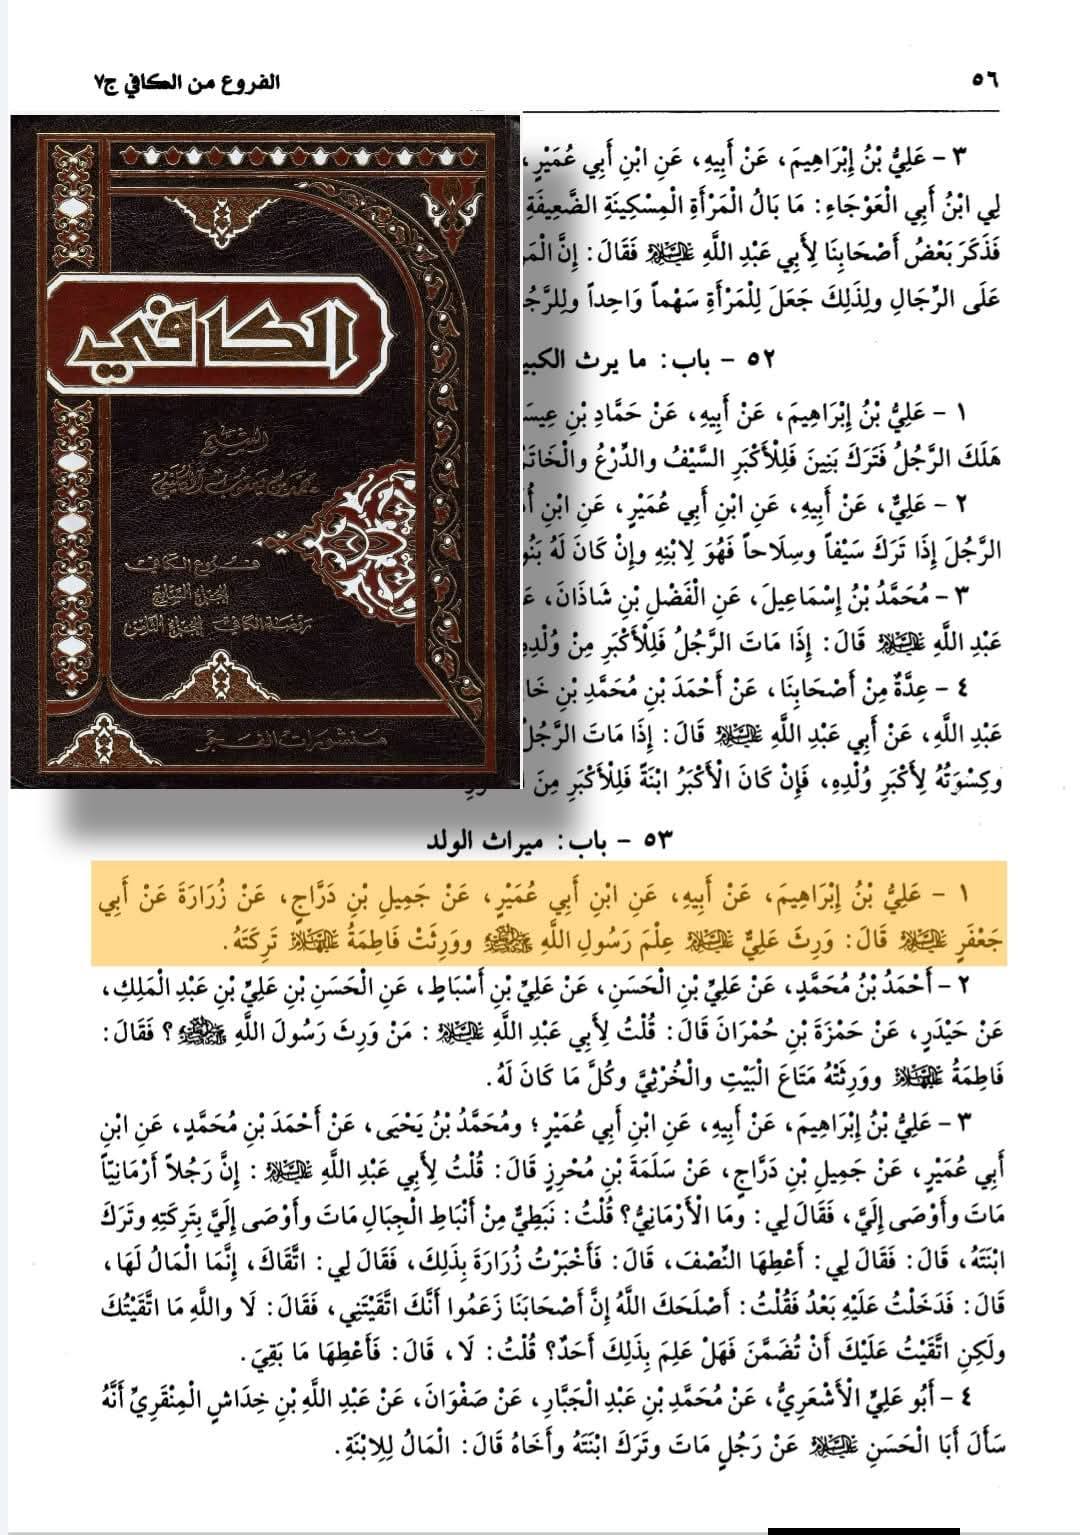 ٥٦
الفروع من الكافي ج٧
٣ - عَلِيُّ بْنُ إِبْرَاهِيمَ، عَنْ أَبِيهِ، عَنِ ابْنِ أَبِي عُمَيْرٍ،
لِي ابْنُ أَبِي الْعَوْجَاءِ: مَا بَالُ الْمَرْأَةِ الْمِسْكِينَةِ الضَّعِيفَةِ
فَذَكَرَ بَعْضُ أَصْحَابِنَا لِأَبِي عَبْدِ اللَّهِ عَلَيْهِ السَّلَامُ فَقَالَ: إِنَّ
عَلَى الرِّجَالِ ولِذَلِكَ جَعَلَ لِلْمَرْأَةِ سَهْماً وَاحِداً
٥٢ - باب: ما يرث
١ - عَلِيُّ بْنُ إِبْرَاهِيمَ، عَنْ أَبِيهِ، عَنْ حَمَّادِ بْنِ
هَلَكَ الرَّجُلُ فَتَرَكَ بَنِينَ فَلِلْأَكْبَرِ السَّيْفُ والدِّرْعُ
٢ - عَلِيٌّ، عَنْ أَبِيهِ، عَنِ ابْنِ أَبِي عُمَيْرٍ، عَنِ ابْنِ
الرَّجُلَ إِذَا تَرَكَ سَيْفاً وسِلَاحاً فَهُوَ لِابْنِهِ وإِنْ كَانَ لَهُ
٣ - مُحَمَّدُ بْنُ إِسْمَاعِيلَ، عَنِ الْفَضْلِ بْنِ شَاذَانَ،
عَبْدِ اللَّهِ عَلَيْهِ السَّلَامُ قَالَ: إِذَا مَاتَ الرَّجُلُ فَلِلْأَكْبَرِ مِنْ
٤ - عِدَّةٌ مِنْ أَصْحَابِنَا، عَنْ أَحْمَدَ بْنِ مُحَمَّدِ بْنِ
عَبْدِ اللَّهِ، عَنْ أَبِي عَبْدِ اللَّهِ عَلَيْهِ السَّلَامُ قَالَ: إِذَا مَاتَ الرَّجُلُ
وكِسْوَتُهُ لِأَكْبَرِ وُلْدِهِ، فَإِنْ كَانَ الْأَكْبَرُ ابْنَةً فَلِلْأَكْبَرِ مِنَ
الكافي
الشيخ
محمد بن يعقوب الكليني
فروع الكافي
الجزء السابع
روضة الكافي الجزء الثامن
منشورات الفجر
٥٣ - باب: ميراث الولد
١ - عَلِيُّ بْنُ إِبْرَاهِيمَ، عَنْ أَبِيهِ، عَنِ ابْنِ أَبِي عُمَيْرٍ، عَنْ جَمِيلِ بْنِ دَرَّاجٍ، عَنْ زُرَارَةَ عَنْ أَبِي
جَعْفَرٍ عَلَيْهِ السَّلَامُ قَالَ: وَرِثَ عَلِيٌّ عَلَيْهِ السَّلَامُ عِلْمَ رَسُولِ اللَّهِ ﷺ ووَرِثَتْ فَاطِمَةُ عَلَيْهَا السَّلَامُ تَرِكَتَهُ.
٢ - أَحْمَدُ بْنُ مُحَمَّدٍ، عَنْ عَلِيِّ بْنِ الْحَسَنِ، عَنْ عَلِيِّ بْنِ أَسْبَاطٍ، عَنِ الْحَسَنِ بْنِ عَلِيِّ بْنِ عَبْدِ الْمَلِكِ،
عَنْ حَيْدَرٍ، عَنْ حَمْزَةَ بْنِ حُمْرَانَ قَالَ: قُلْتُ لِأَبِي عَبْدِ اللَّهِ عَلَيْهِ السَّلَامُ: مَنْ وَرِثَ رَسُولَ اللَّهِ ﷺ؟ فَقَالَ:
فَاطِمَةُ عَلَيْهَا السَّلَامُ ووَرِثَتْهُ مَتَاعَ الْبَيْتِ والْخُرْثِيَّ وكُلَّ مَا كَانَ لَهُ.
٣ - عَلِيُّ بْنُ إِبْرَاهِيمَ، عَنْ أَبِيهِ، عَنِ ابْنِ أَبِي عُمَيْرٍ؛ ومُحَمَّدُ بْنُ يَحْيَى، عَنْ أَحْمَدَ بْنِ مُحَمَّدٍ، عَنِ ابْنِ
أَبِي عُمَيْرٍ، عَنْ جَمِيلِ بْنِ دَرَّاجٍ، عَنْ سَلَمَةَ بْنِ مُحْرِزٍ قَالَ: قُلْتُ لِأَبِي عَبْدِ اللَّهِ عَلَيْهِ السَّلَامُ: إِنَّ رَجُلاً أَرْمَانِيّاً
مَاتَ وأَوْصَى إِلَيَّ، فَقَالَ لِي: ومَا الْأَرْمَانِيُّ؟ قُلْتُ: نَبَطِيٌّ مِنْ أَنْبَاطِ الْجِبَالِ مَاتَ وأَوْصَى إِلَيَّ بِتَرِكَتِهِ وتَرَكَ
ابْنَتَهُ، قَالَ: فَقَالَ لِي: أَعْطِهَا النِّصْفَ، قَالَ: فَأَخْبَرْتُ زُرَارَةَ بِذَلِكَ، فَقَالَ لِي: اتَّقَاكَ، إِنَّمَا الْمَالُ لَهَا،
قَالَ: فَدَخَلْتُ عَلَيْهِ بَعْدُ فَقُلْتُ: أَصْلَحَكَ اللَّهُ إِنَّ أَصْحَابَنَا زَعَمُوا أَنَّكَ اتَّقَيْتَنِي، فَقَالَ: لَا واللَّهِ مَا اتَّقَيْتُكَ
ولَكِنِ اتَّقَيْتُ عَلَيْكَ أَنْ تُضَمَّنَ فَهَلْ عَلِمَ بِذَلِكَ أَحَدٌ؟ قُلْتُ: لَا، قَالَ: فَأَعْطِهَا مَا بَقِيَ.
٤ - أَبُو عَلِيٍّ الْأَشْعَرِيُّ، عَنْ مُحَمَّدِ بْنِ عَبْدِ الْجَبَّارِ، عَنْ صَفْوَانَ، عَنْ عَبْدِ اللَّهِ بْنِ خِدَاشٍ الْمِنْقَرِيِّ أَنَّهُ
سَأَلَ أَبَا الْحَسَنِ عَلَيْهِ السَّلَامُ عَنْ رَجُلٍ مَاتَ وتَرَكَ ابْنَتَهُ وأَخَاهُ قَالَ: الْمَالُ لِلِابْنَةِ.